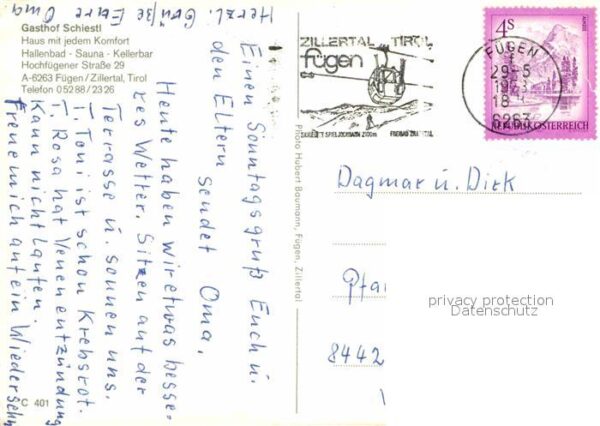 Gasthof Schiestl
Haus mit jedem Komfort
Hallenbad - Sauna - Kellerbar
Hochfügener Straße 29
A-6263 Fügen / Zillertal, Tirol
Telefon 0 52 88 / 23 26
Einen Sonntagsgruß Euch u.
den Eltern sendet Oma.
Heute haben wir etwas besse-
res Wetter. Sitzen auf der
Terrasse u. sonnen uns.
T. Toni ist schon Krebsrot.
T. Rosa hat Venenentzündung
Kann nicht laufen.
Freue mich auf ein Wiedersehn
Herzl. Grüße Eure Oma
C 401
Photo Hubert Baumann, Fügen, Zillertal
ZILLERTAL TIROL
fügen
SPIELJOCHBAHN 2100m
FREIBAD ZILLERTAL
FÜGEN
29-5
18
6263
4S
REPUBLIK ÖSTERREICH
Dagmar u. Dirk
8442
privacy protection
Datenschutz